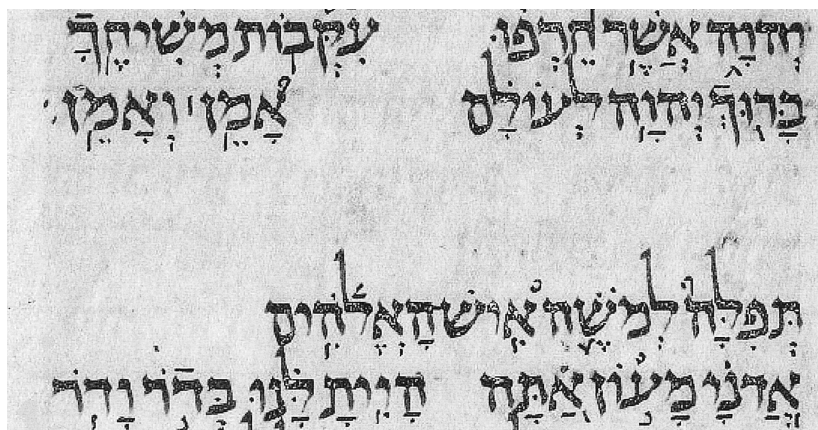 יְהוָה אֲשֶׁר חֵרְפוּ עִקְּבוֹת מְשִׁיחֶךָ
בָּרוּךְ יְהוָה לְעוֹלָם אָמֵן וְאָמֵן
תְּפִלָּה לְמֹשֶׁה אִישׁ הָאֱלֹהִים
אֲדֹנָי מָעוֹן אַתָּה הָיִיתָ לָּנוּ בְּדֹר וָדֹר